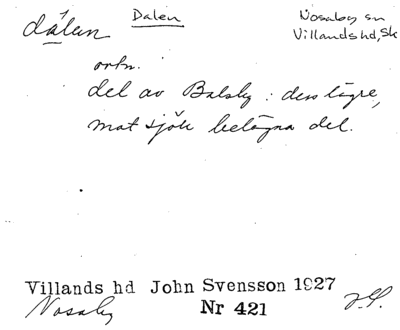 dálen
Dalen
Nosaby sn
Villands hd, Sk
ortn.
del av Balsby : dess lägre,
mot sjön belägna del.
Villands hd John Svensson 1927
Nosaby
Nr 421